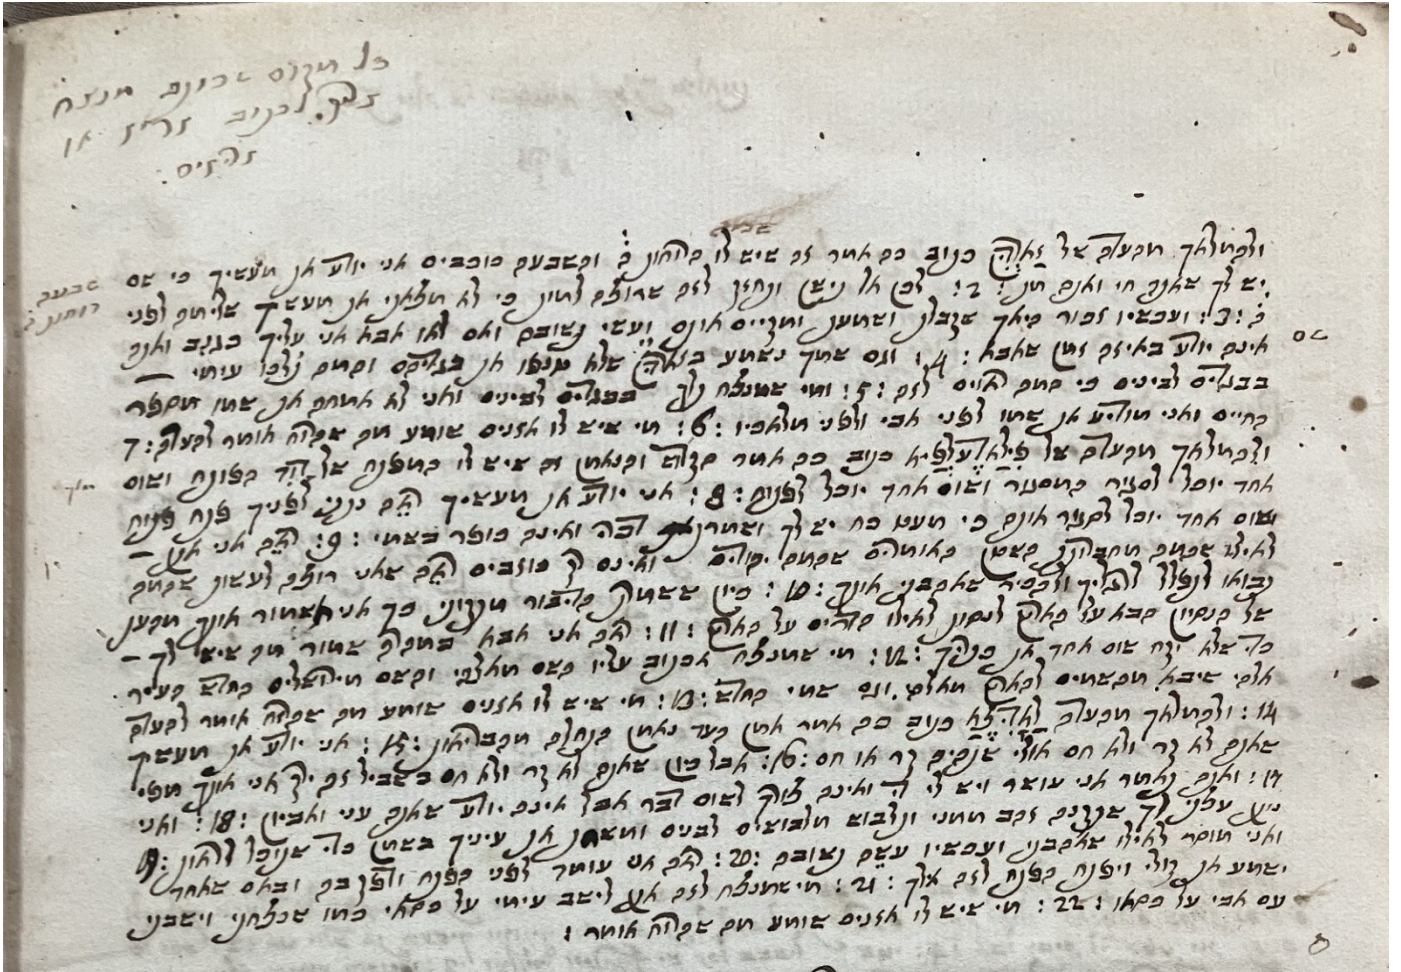 כל מקום שכותב מנצח
צריך לכתוב או
שמות
ולהמלאך מקהלה של כתוב כה אמר זה שיש לו הרוחות ה׳ והשבעה כוכבים אני יודע את מעשיך כי שם
שבעה רוחות ה׳
יש לך שאתה חי ואתה מת :2: לכן אל תישן ותחזק לזה שרוצה למות כי לא מצאתי את מעשיך שלימה לפני
ה׳ :3: ועכשיו זכור היאך שקבלת ושמעת ותקיים אותם ועשי תשובה ואם לאו אבא אני עליך כגנב ואתה
אינה יודע באיזה זמן שאבא :4: וגם שמך נשמע שלא טנפו את בגדיהם והמה עימי
בבגדים לבינים כי המה ראוים לזה :5: ומי שמנצח ילך בבגדים לבינים ואני לא אמחה את שמו מהספר
החיים ואני מודיע את שמו לפני אבי ולפני מלאכיו :6: מי שיש לו אזנים שומע מה שהרוח אומר לקהלה :7
ולהמלאך מקהלה של פילאדעלפיא כתוב כה אמר קדוש והנאמן זה שיש לו המפתח של דוד הפותח ושום
אחד יוכל לסגור המסגור ושום אחד יוכל לפתוח :8: אני יודע את מעשיך ראה נתתי לפניך פתח פתוח
ושום אחד יוכל לסגור אותה כי מעט כח יש לך ושמרת ואינה כופר בשמי :9: ראה אני אתן
לאילו שהמה מחברת השטן האומרים שהמה יהודים ואינם רק כוזבים ראה שאני רוצה לעשות שהמה
יבואו לרגליך שאהבתי אותך :10: כיון ששמרת הדיבור כך אני אשמור אותך מהעת
של הנסיון הבא על הארץ לנסות לאילו הדרים על הארץ :11: ראה אני אבא במהרה שמור מה שיש לך
כדי שלא יקח שום אחד את כתרך :12: מי שמנצח אכתוב עליו השם מאלהי והשם מירושלים החדש העיר
אלהי שיבא מהשמים להארץ מאלהי וגם שמי החדש :13: מי שיש לו אזנים שומע מה שהרוח אומר לקהלה
14: ולהמלאך מקהלה כתוב כה אמר אמן העד נאמן התחלה מהבריאות :15: אני יודע את מעשיך
שאתה לא קר ולא חם אולי שתהיה קר או חם :16: אבל כיון שאתה לא קר ולא חם בשביל זה ירק אני אותך מפי
17: ואתה תאמר אני עושר ויש לי די ואינה צריך לשום דבר אבל אינה יודע שאתה עני ואביון :18: ואני
נותן עצתי לך שתקנה זהב ממני ותלבוש מלבושים לבנים ותמשח את עיניך בשמן כדי שתוכל לראות :19:
ואני מוסר לאילו שאהבתי ועכשיו עשה תשובה :20: ראה אני עומד לפני הפתח ובאם שאחד
ישמע את קולי ויפתח הפתח לזה אלך :21: מי שמנצח לזה אתן לישב עימי על כסאי כמו שנצחתי וישבתי
עם אבי על כסאו :22: מי שיש לו אזנים שומע מה שהרוח אומר :